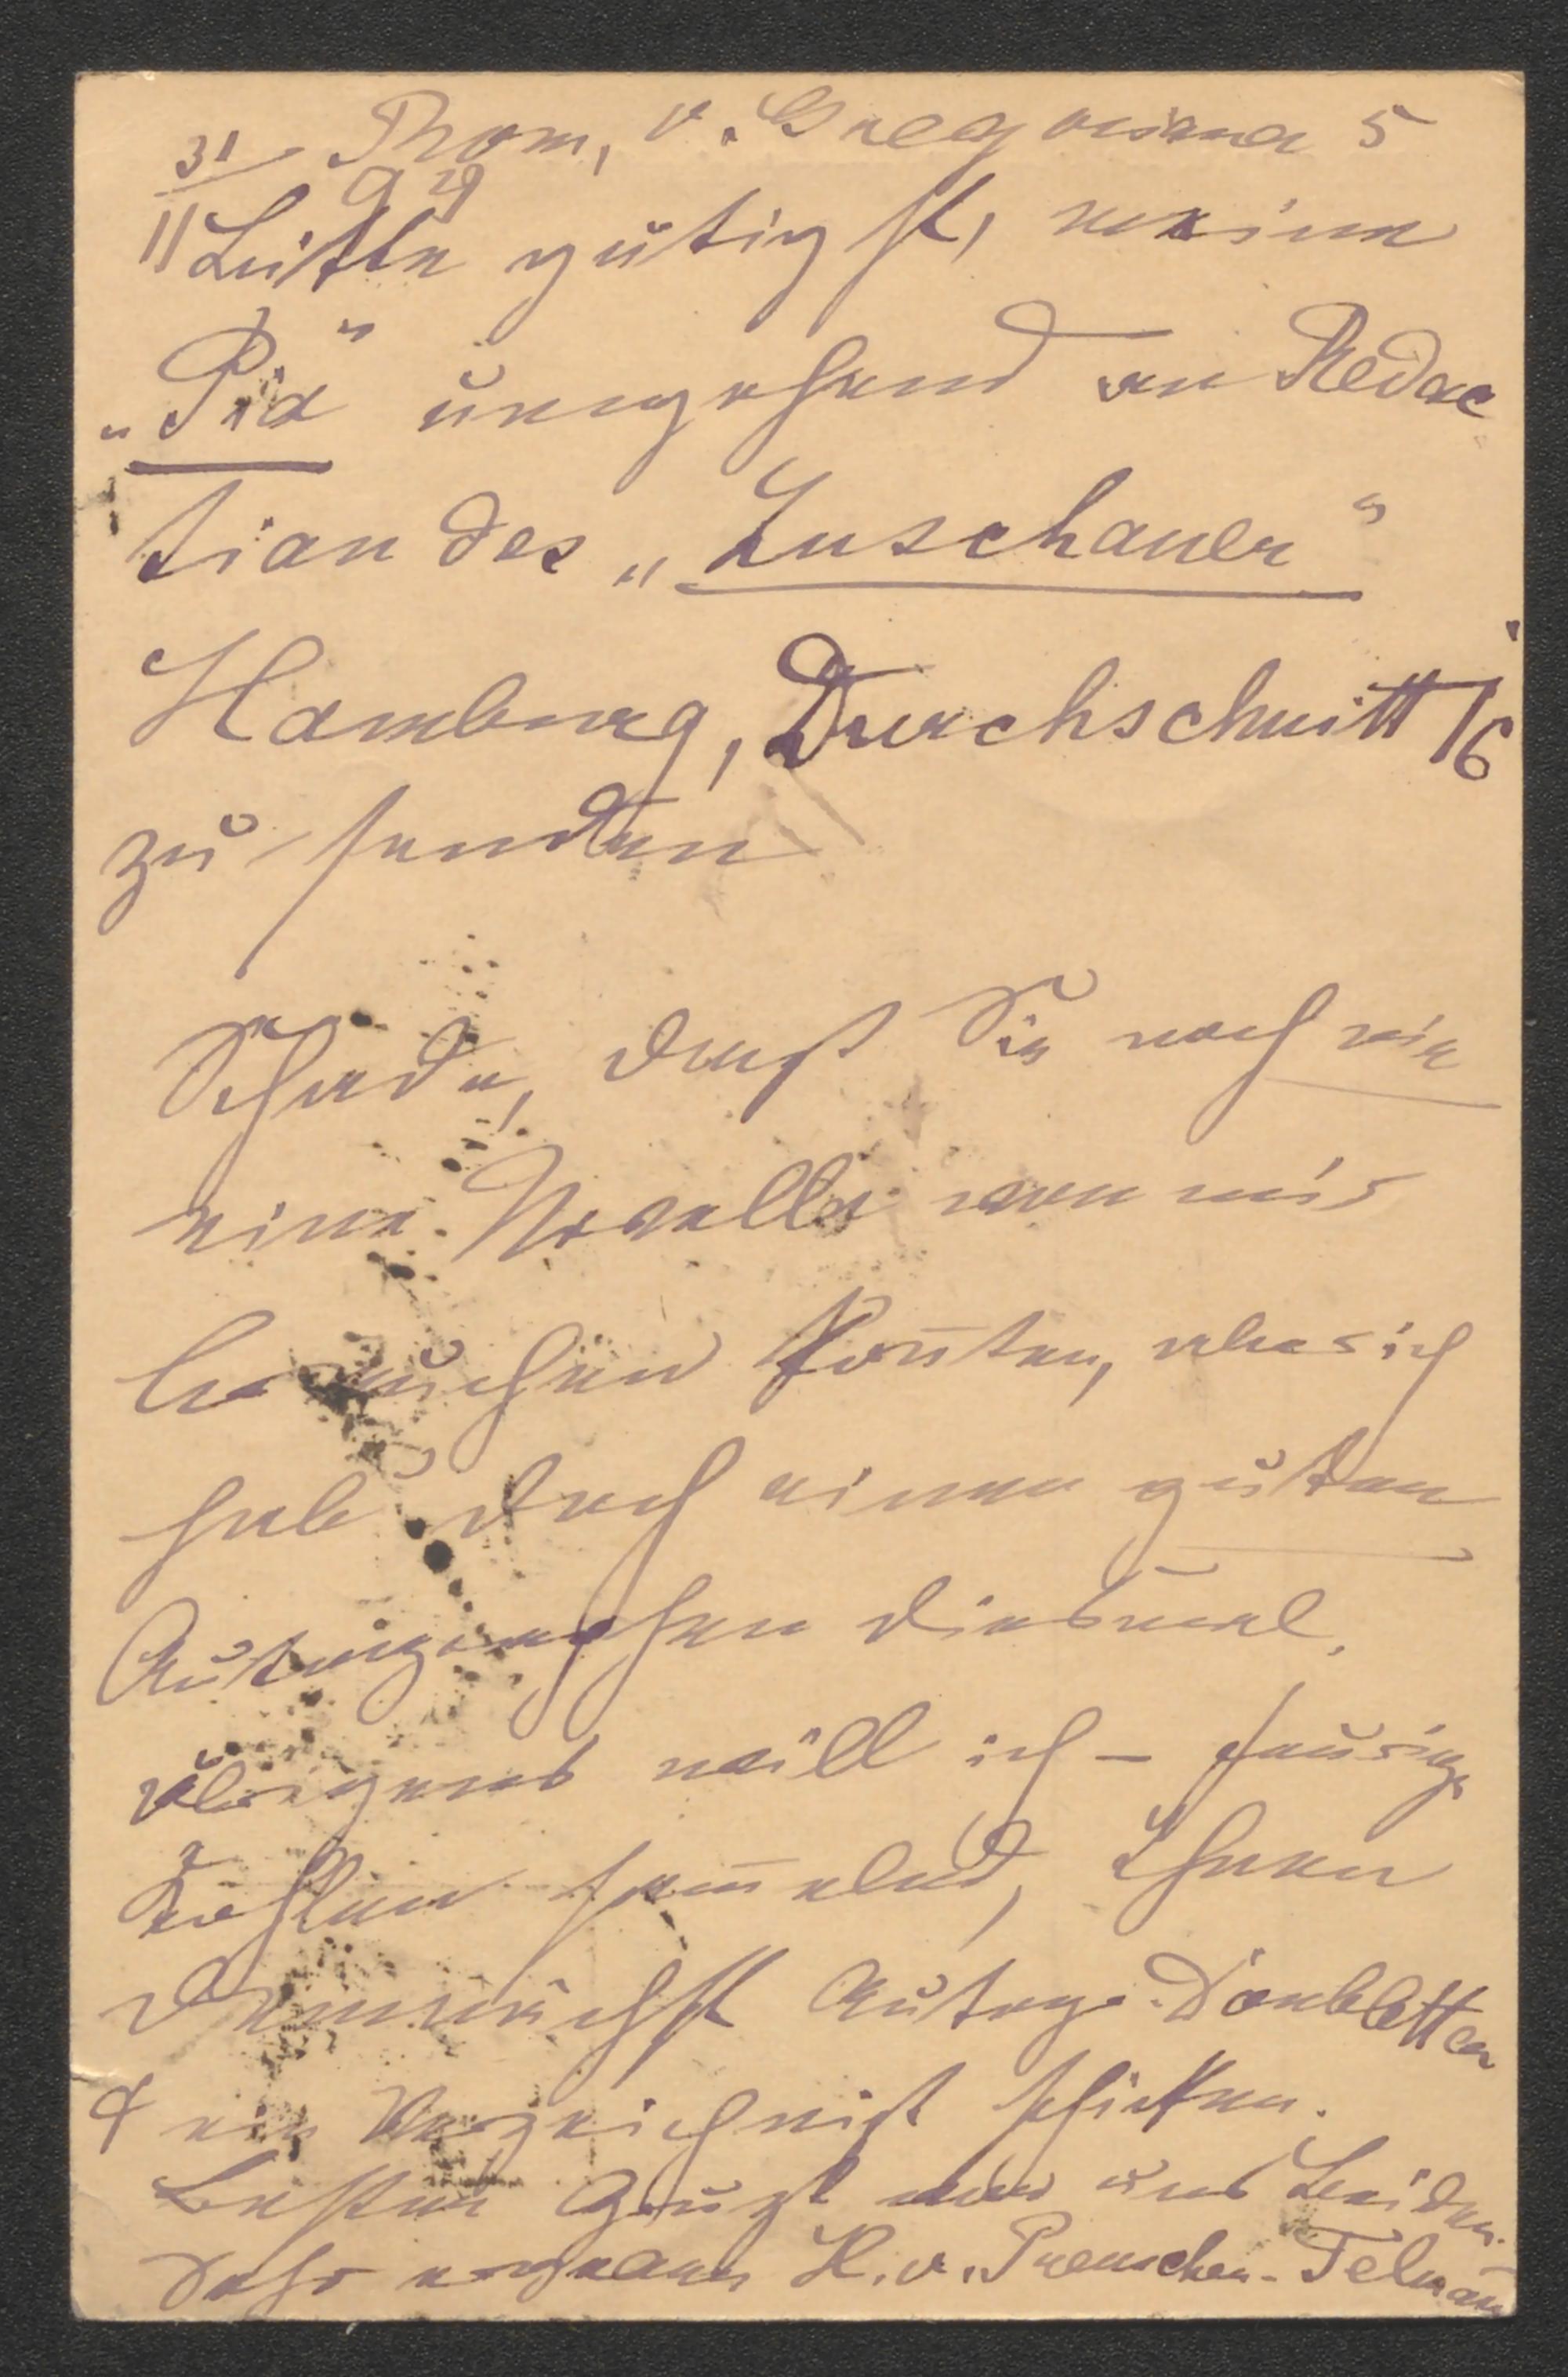 31/11 Rom, v. Gregoriana 5
94
Bitte gütigst, meine
„Pia" umgehend an Redac
tion des „Zuschauer"
Hamburg, Durchschnitt 16
zu senden
Schade, daß Sie noch nie
eine Novelle von mir
brauchen konnten, aber ich
hab' doch einen guten
Autographen diesmal.
Übrigens will ich – feurige
Kohlen sam̄elnd, Ihnen
demnächst Autogr. Doubletten
& ein Verzeichnißt schicken.
Besten Gruß von uns Beiden.
Sehr ergeben H. v. Preuschen-Telman̄